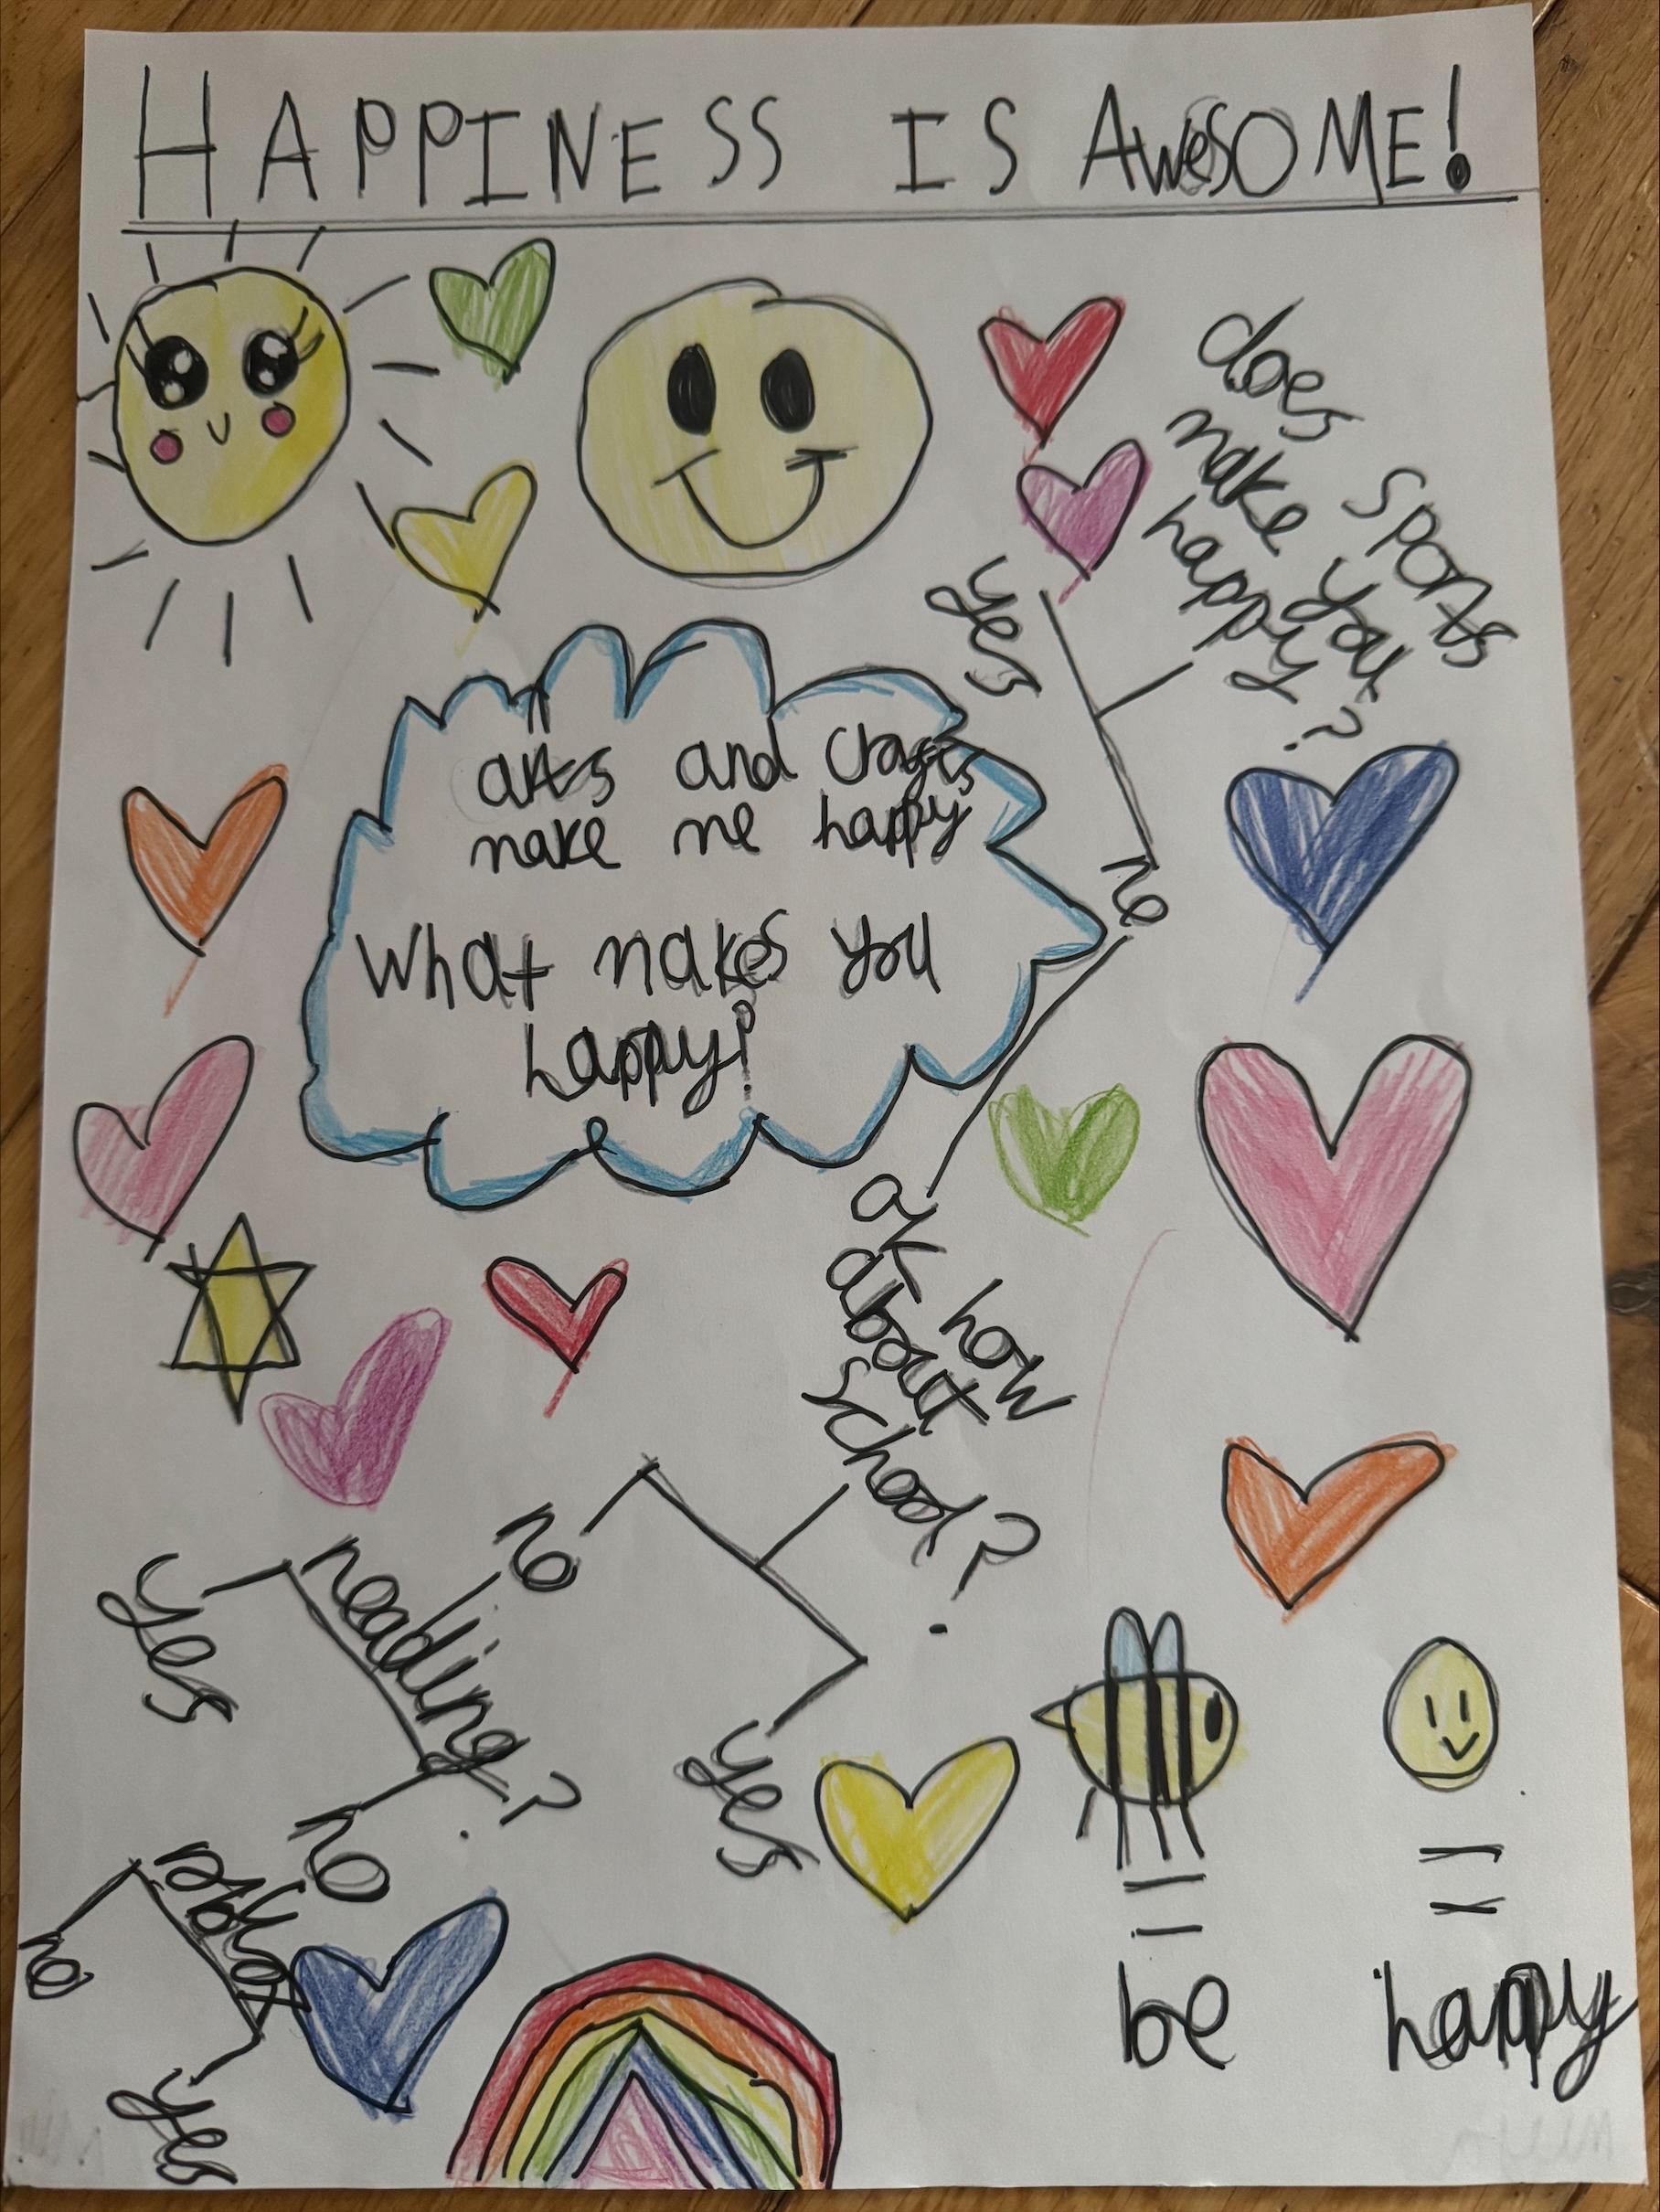 HAPPINESS IS AweSOME!
does sports
make you
happy?
yes
no
arts and crafts
make me happy
What makes you
happy?
ok how
about
school?
no
yes
reading?
yes
no
roblox
no
yes
=
=
be
happy